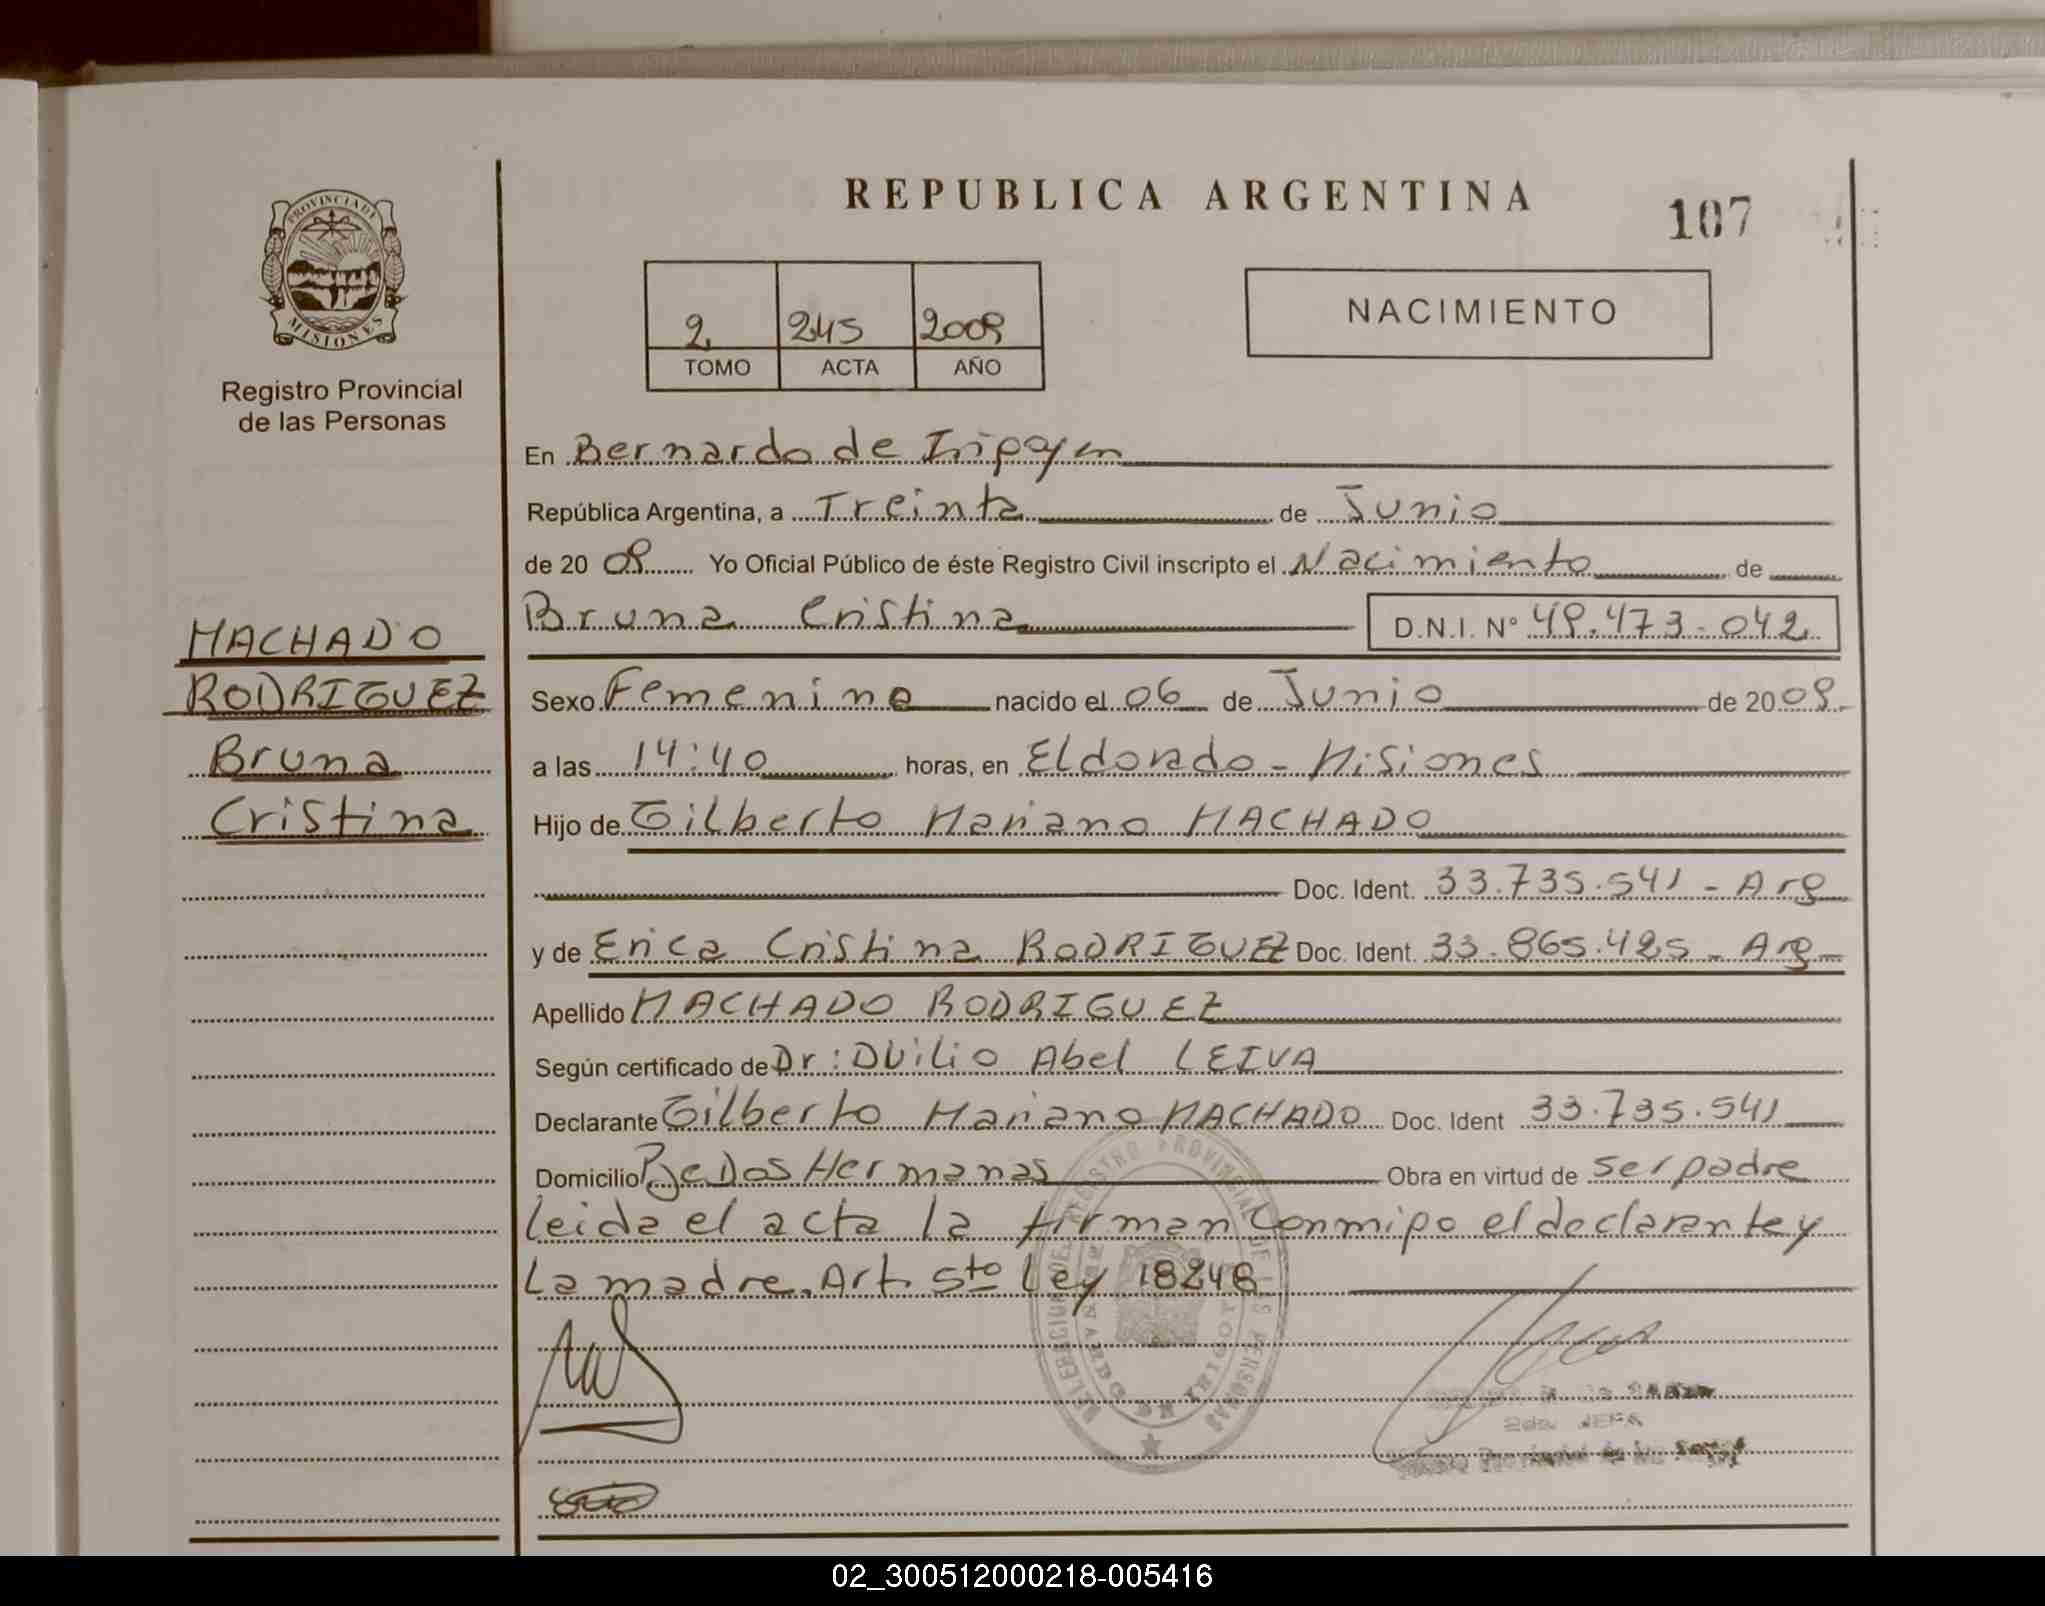 REPUBLICA ARGENTINA
107
PROVINCIA DE
MISIONES
Registro Provincial
de las Personas
2 245 2009
TOMO ACTA AÑO
NACIMIENTO
En Bernardo de Irigoyen
República Argentina, a Treinta de Junio
de 2009 Yo Oficial Público de éste Registro Civil inscripto el Nacimiento de
Bruna Cristina D.N.I. N° 49.473.042
MACHADO
RODRIGUEZ
Bruna
Cristina
Sexo Femenino nacido el 06 de Junio de 2009
a las 14:40 horas, en Eldorado - Misiones
Hijo de Gilberto Mariano MACHADO
Doc. Ident. 33.735.541 - Arg
y de Erica Cristina RODRIGUEZ Doc. Ident. 33.865.425 - Arg
Apellido MACHADO RODRIGUEZ
Según certificado de Dr: Duilio Abel LEIVA
Declarante Gilberto Mariano MACHADO Doc. Ident 33.735.541
Domicilio Pje Dos Hermanas Obra en virtud de ser padre
leida el acta la firman conmigo el declarante y
la madre. Art. 5to Ley 18248
DELEGACION DEL REGISTRO PROVINCIAL DE LAS PERSONAS
BERNARDO DE IRIGOYEN
2da JEFA
02_300512000218-005416